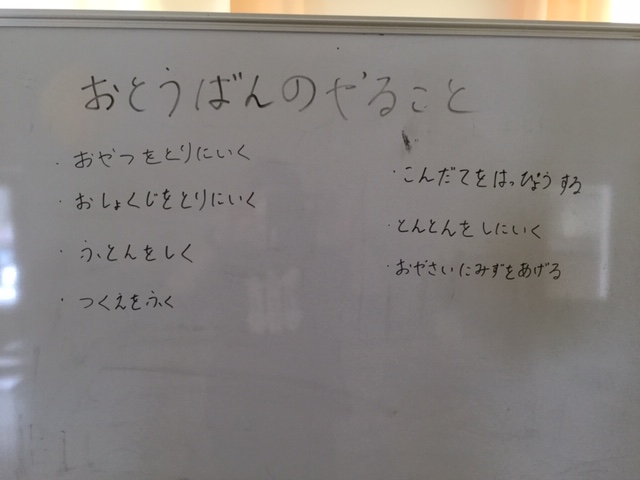 おとうばんのやること
・おやつをとりにいく
・おしょくじをとりにいく
・ふとんをしく
・つくえをふく
・こんだてをはっぴょうする
・とんとんをしにいく
・おやさいにみずをあげる